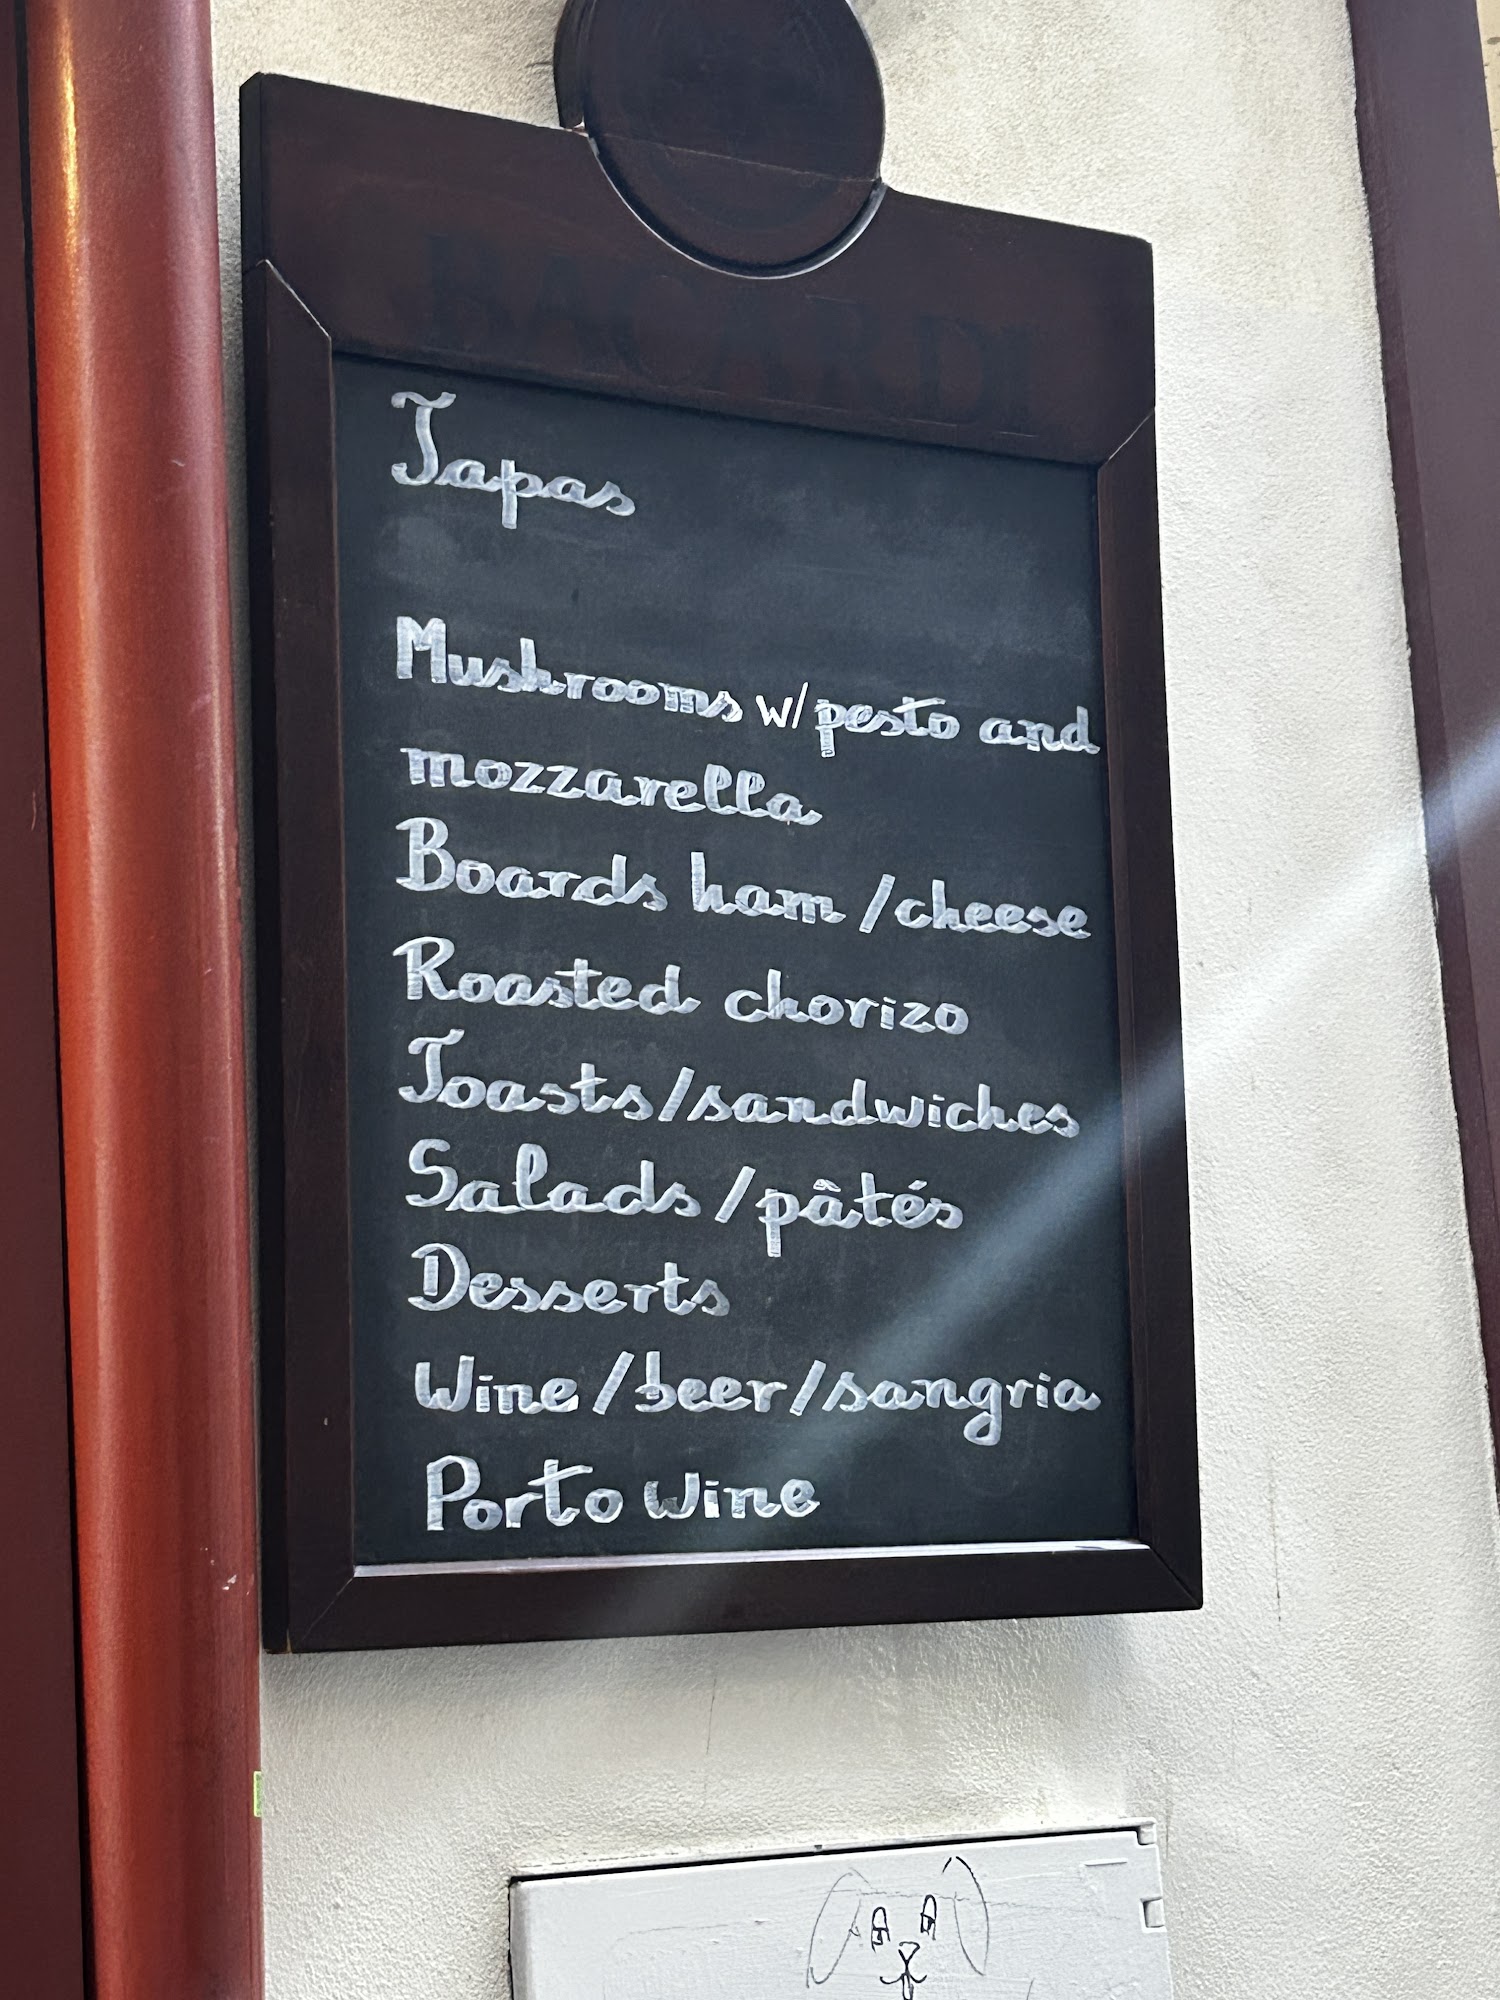 BACARDI
Tapas
Mushrooms w/pesto and
mozzarella
Boards ham/cheese
Roasted chorizo
Toasts/sandwiches
Salads/pâtés
Desserts
Wine/beer/sangria
Porto wine